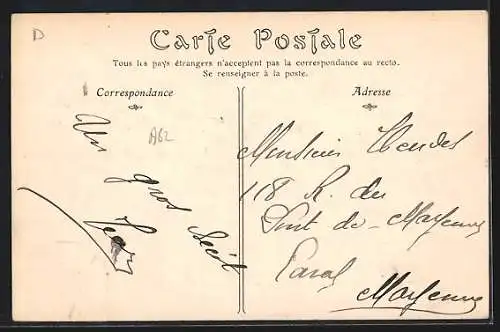 D
Carte Postale
Tous les pays étrangers n'acceptent pas la correspondance au recto.
Se renseigner à la poste.
Correspondance
Adresse
A62
Un gros
Monsieur Mendes
118 R. du
Pont de Mayenne
Laval
Mayenne